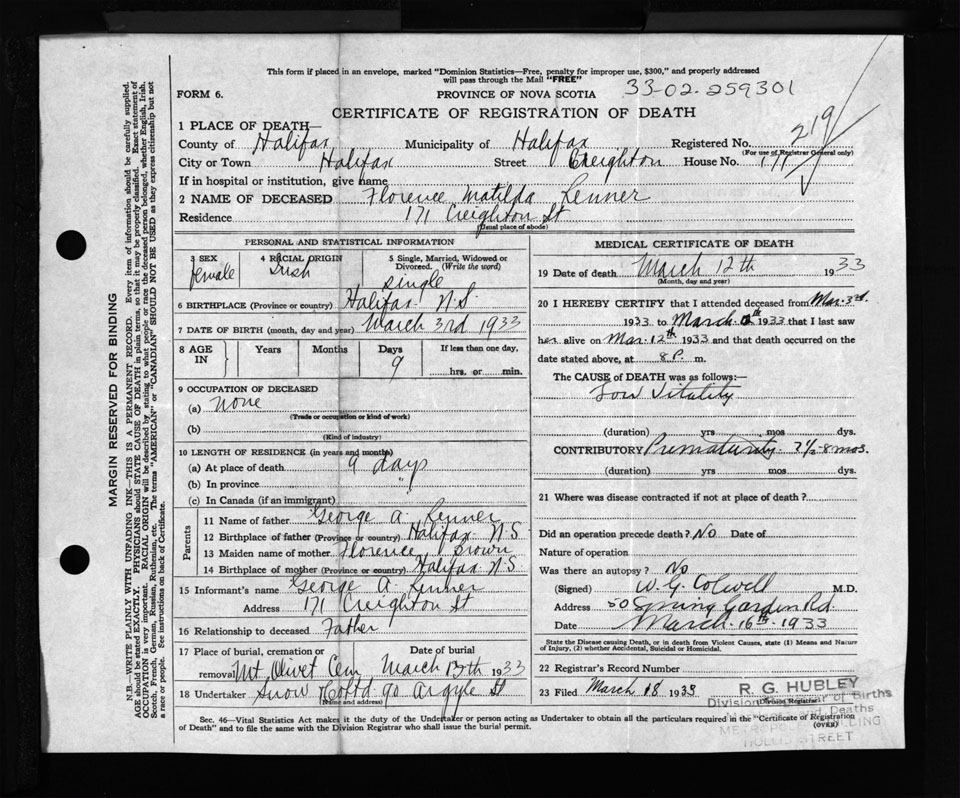 This form if placed in an envelope, marked "Dominion Statistics—Free, penalty for improper use, $300," and properly addressed
will pass through the Mail "FREE"
FORM 6. PROVINCE OF NOVA SCOTIA 33-02-259301
CERTIFICATE OF REGISTRATION OF DEATH
1 PLACE OF DEATH—
County of Halifax Municipality of Halifax Registered No. 219
(For use of Registrar General only)
City or Town Halifax Street Creighton House No. 171
If in hospital or institution, give name
2 NAME OF DECEASED Florence Matilda Lenner
Residence 171 Creighton St
(Usual place of abode)
PERSONAL AND STATISTICAL INFORMATION
3 SEX 4 RACIAL ORIGIN 5 Single, Married, Widowed or
Divorced. (Write the word)
female Irish single
6 BIRTHPLACE (Province or country) Halifax N.S.
7 DATE OF BIRTH (month, day and year) March 3rd 1933
8 AGE IN Years Months Days If less than one day,
9 hrs. or min.
9 OCCUPATION OF DECEASED
(a) none
(Trade or occupation or kind of work)
(b)
(Kind of industry)
10 LENGTH OF RESIDENCE (in years and months)
(a) At place of death 9 days
(b) In province "
(c) In Canada (if an immigrant)
Parents
11 Name of father George A. Lenner
12 Birthplace of father (Province or country) Halifax N.S.
13 Maiden name of mother Florence Brown
14 Birthplace of mother (Province or country) Halifax N.S.
15 Informant's name George A. Lenner
Address 171 Creighton St
16 Relationship to deceased Father
17 Place of burial, cremation or Date of burial
removal Mt. Olivet Cem March 13th 1933
18 Undertaker Snow & Co Ltd 90 Argyle St
(Name and address)
MEDICAL CERTIFICATE OF DEATH
19 Date of death March 12th 1933
(Month, day and year)
20 I HEREBY CERTIFY that I attended deceased from Mar. 3rd.
1933 to March 1933 that I last saw
her alive on Mar. 12th 1933 and that death occurred on the
date stated above, at 8 P. m.
The CAUSE of DEATH was as follows:—
Low Vitality
(duration) yrs mos dys.
CONTRIBUTORY Prematurity. 7 1/2-8 mos.
(duration) yrs mos dys.
21 Where was disease contracted if not at place of death?
Did an operation precede death? No Date of
Nature of operation
Was there an autopsy? No
(Signed) W. G. Colwell M.D.
Address 50 Spring Garden Rd.
Date March 16th 1933
State the Disease causing Death, or in death from Violent Causes, state (1) Means and Nature
of Injury, (2) whether Accidental, Suicidal or Homicidal.
22 Registrar's Record Number
23 Filed March 18 1933
(Division Registrar)
R. G. HUBLEY
Division Registrar of Births
and Deaths
METROPOLE BUILDING
HOLLIS STREET
Sec. 46—Vital Statistics Act makes it the duty of the Undertaker or person acting as Undertaker to obtain all the particulars required in the "Certificate of Registration
of Death" and to file the same with the Division Registrar who shall issue the burial permit. (OVER)
MARGIN RESERVED FOR BINDING
N.B.—WRITE PLAINLY WITH UNFADING INK—THIS IS A PERMANENT RECORD. Every item of information should be carefully supplied.
AGE should be stated EXACTLY. PHYSICIANS should STATE CAUSE OF DEATH in plain terms, so that it may be properly classified. Exact statement of
OCCUPATION is very important. RACIAL ORIGIN will be described by stating to what people or race the deceased person belonged, whether English, Irish,
Scotch, French, German, Russian, Ruthenian, etc. The terms "AMERICAN" or "CANADIAN" SHOULD NOT BE USED as they express citizenship but not
a race or people. See instructions on back of Certificate.